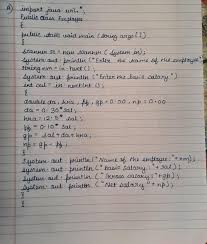 A) import java.util.*;
Public class Employee
{
public static void main (string args[])
{
Scanner sc = new Scanner (system.in);
system.out.println("Enter the Name of the employee");
String nm = in.next();
System.out.println("Enter the basic salary");
int sal = in.nextInt();
{
double da, hra, pf, gp=0.00, np=0.00
da = 0.30*sal;
hra = 12.5*sal;
pf = 0.10*sal;
gp = sal+da+hra;
np = gp-pf;
}
System.out.println("Name of the employee:"+nm);
System.out.println("basic salary:"+sal);
System.out.println("Gross salary:"+gp);
System.out.println("Net salary"+np);
}
}